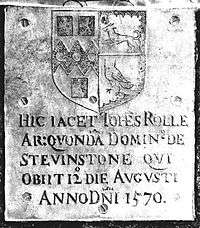 HIC IACET IOHES ROLLE
AR: QVONDĀ DOMIN⁹ DE
STEVINSTONE QVI
OBIIT 12 DIE AVGVSTI
ANNO DNI 1570.